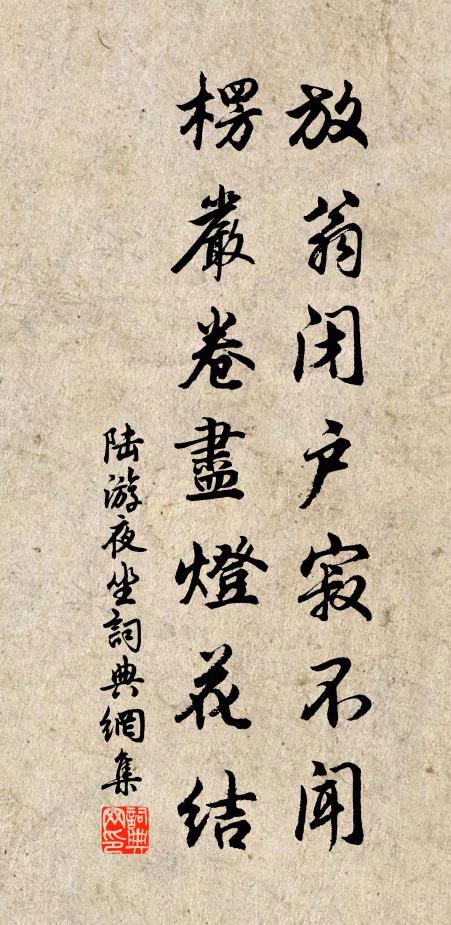 放翁闭户寂不闻
楞嚴卷盡燈花结
陆游夜坐詞典網集
詞典
网印